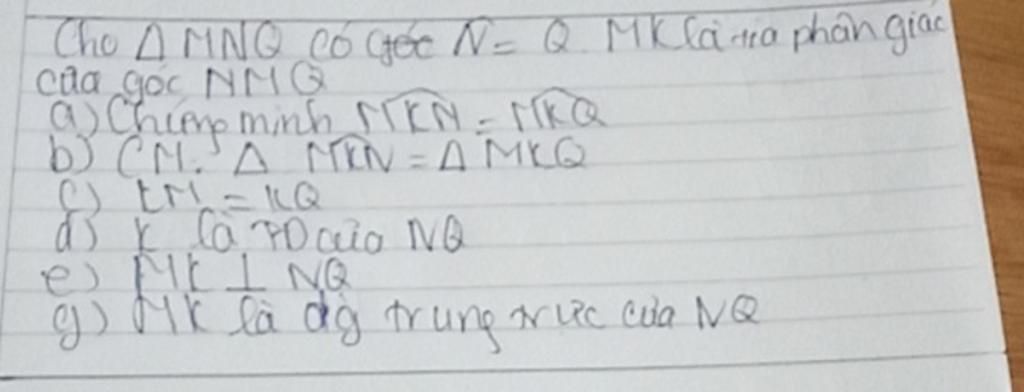 Cho Δ MNQ có góc N = Q MK là tia phân giác
của góc NMQ
a) Chứng minh MKN = MKQ
b) CM. Δ MKN = Δ MKQ
c) KM = KQ
d) K là TD của NQ
e) MK ⊥ NQ
g) MK là đg trung trực của NQ